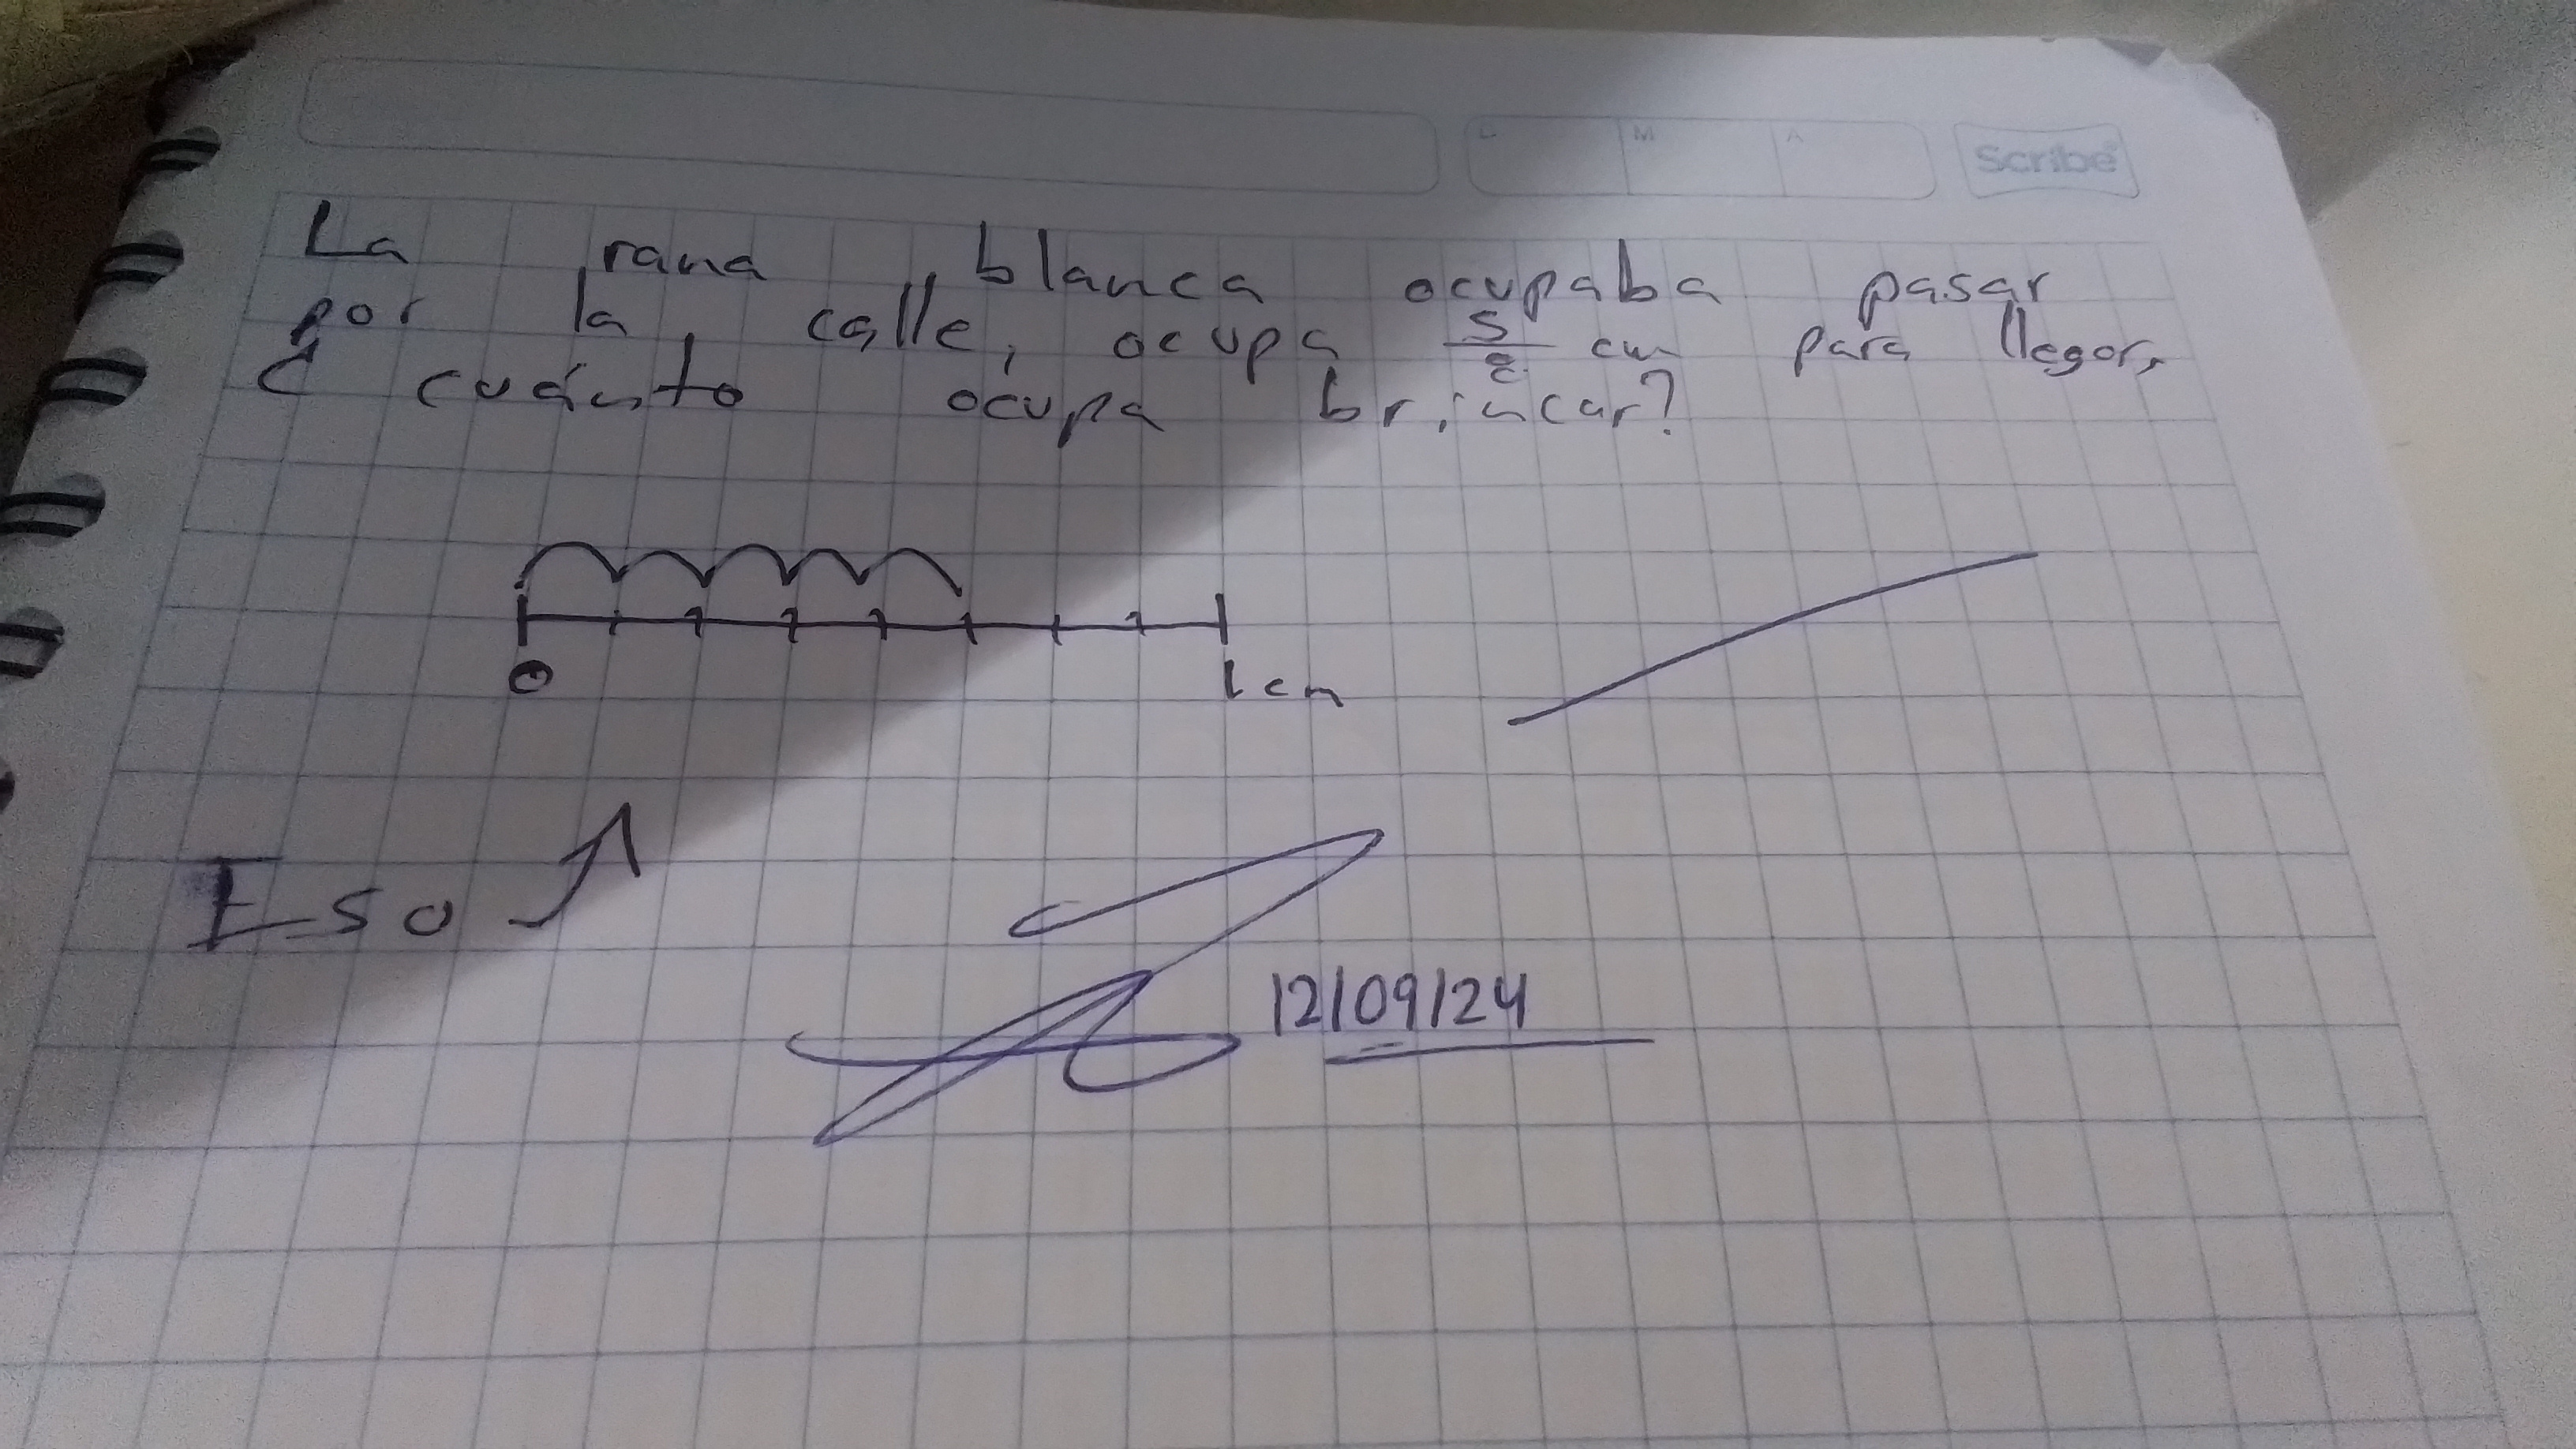 L M A Scribe
La rana blanca ocupaba pasar
por la calle, ocupa 5/8 cm para llegar,
¿ cuánto ocupa brincar?
0 1 cm
Eso
12/09/24